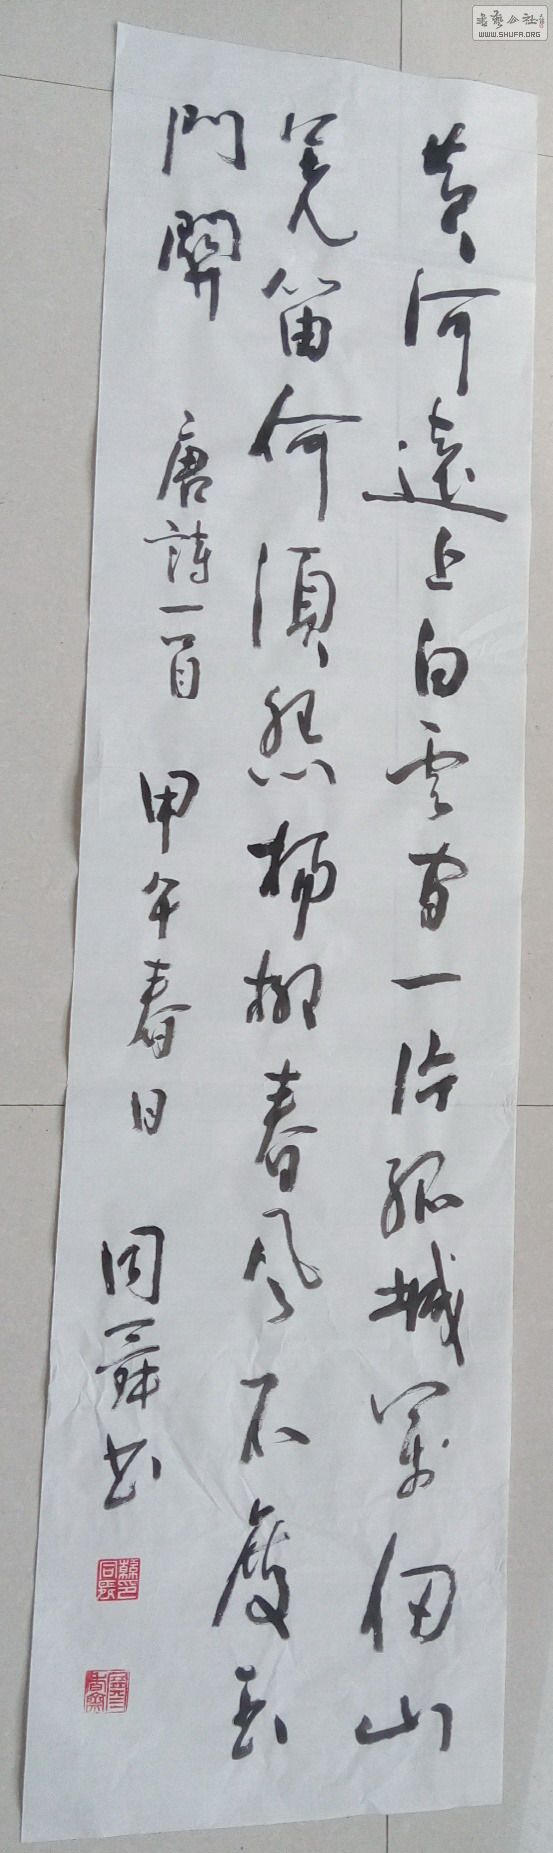 黄河遠上白雲間一片孤城萬仞山
羌笛何須怨楊柳春風不度玉
門關 唐詩一首 甲午春日 同舜书
书艺公社
WWW.SHUFA.ORG